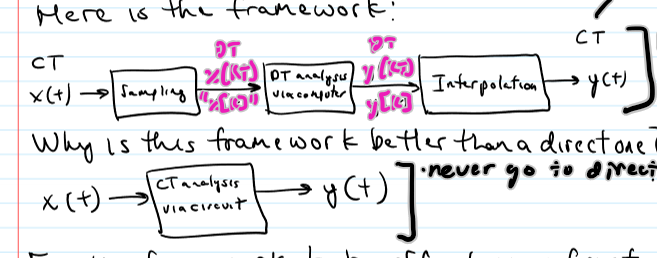 Here is the framework:
CT
DT
DT
CT
x(t) → Sampling
x(kT)
"x[k]"
DT analysis
via computer
y(kT)
y[k]
Interpolation → y(t)
Why is this framework better than a direct one
x(t) → CT analysis
via circuit → y(t)
• never go to direct